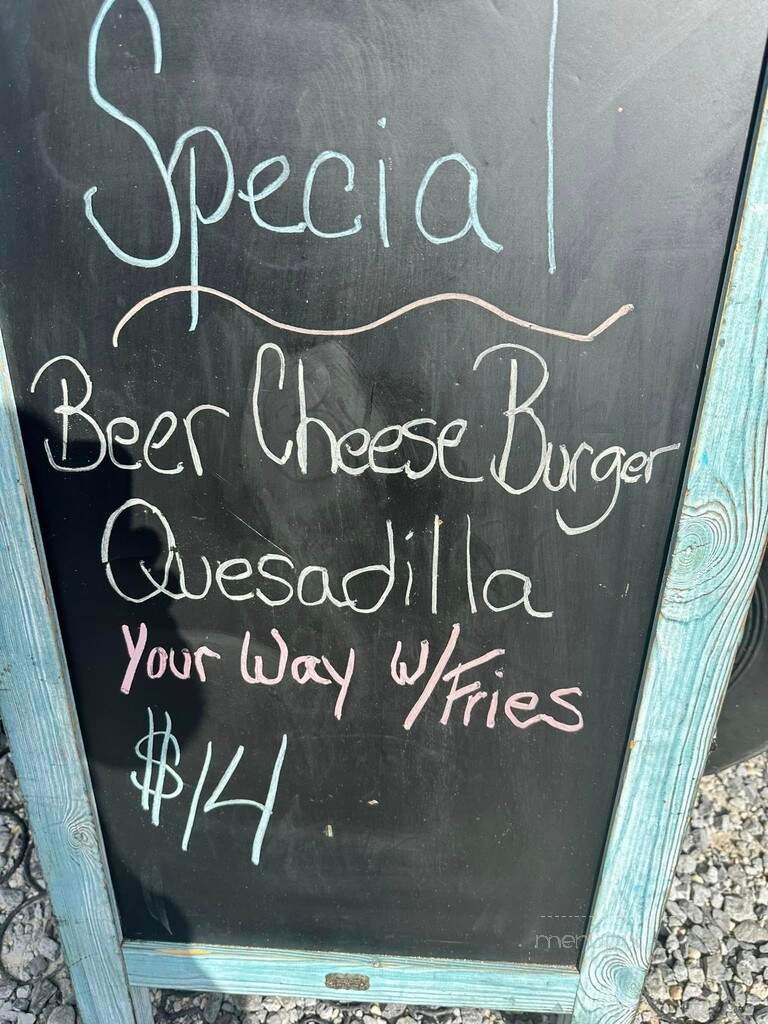 Special
Beer Cheese Burger
Quesadilla
Your Way w/Fries
$14